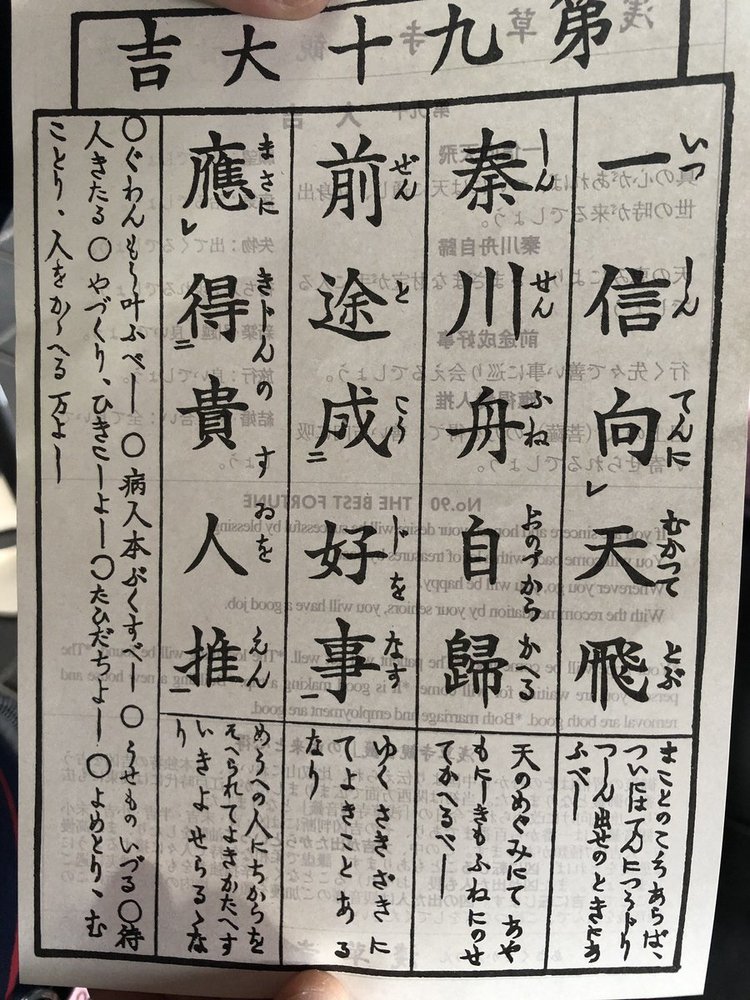 第九十大吉
いつ しん てんに むかつて とぶ
一信向レ天飛
まことのこゝろあらば、
ついにはてんにつうじり
つしん出せのときにあ
ふべし
しん せん ふね おのづから かへる
秦川舟自歸
天のめぐみにてあや
もにしきもふねにのせ
てかへるべし
ぜん と こうじを なす
前途成二好事一
ゆくさきざきに
てよきことある
なり
まさに きじんの すゐを えん
應レ得二貴人推一
めうへの人にちからを
そへられてよきかたへす
いきよせらるゝな
り
〇ぐわんもう叶ふべし〇病人本ぶくすべし〇うせものいづる〇待
人きたる〇やづくり、ひきこしよし〇たびだちよし〇よめとり、む
ことり、人をかゝへる万よし